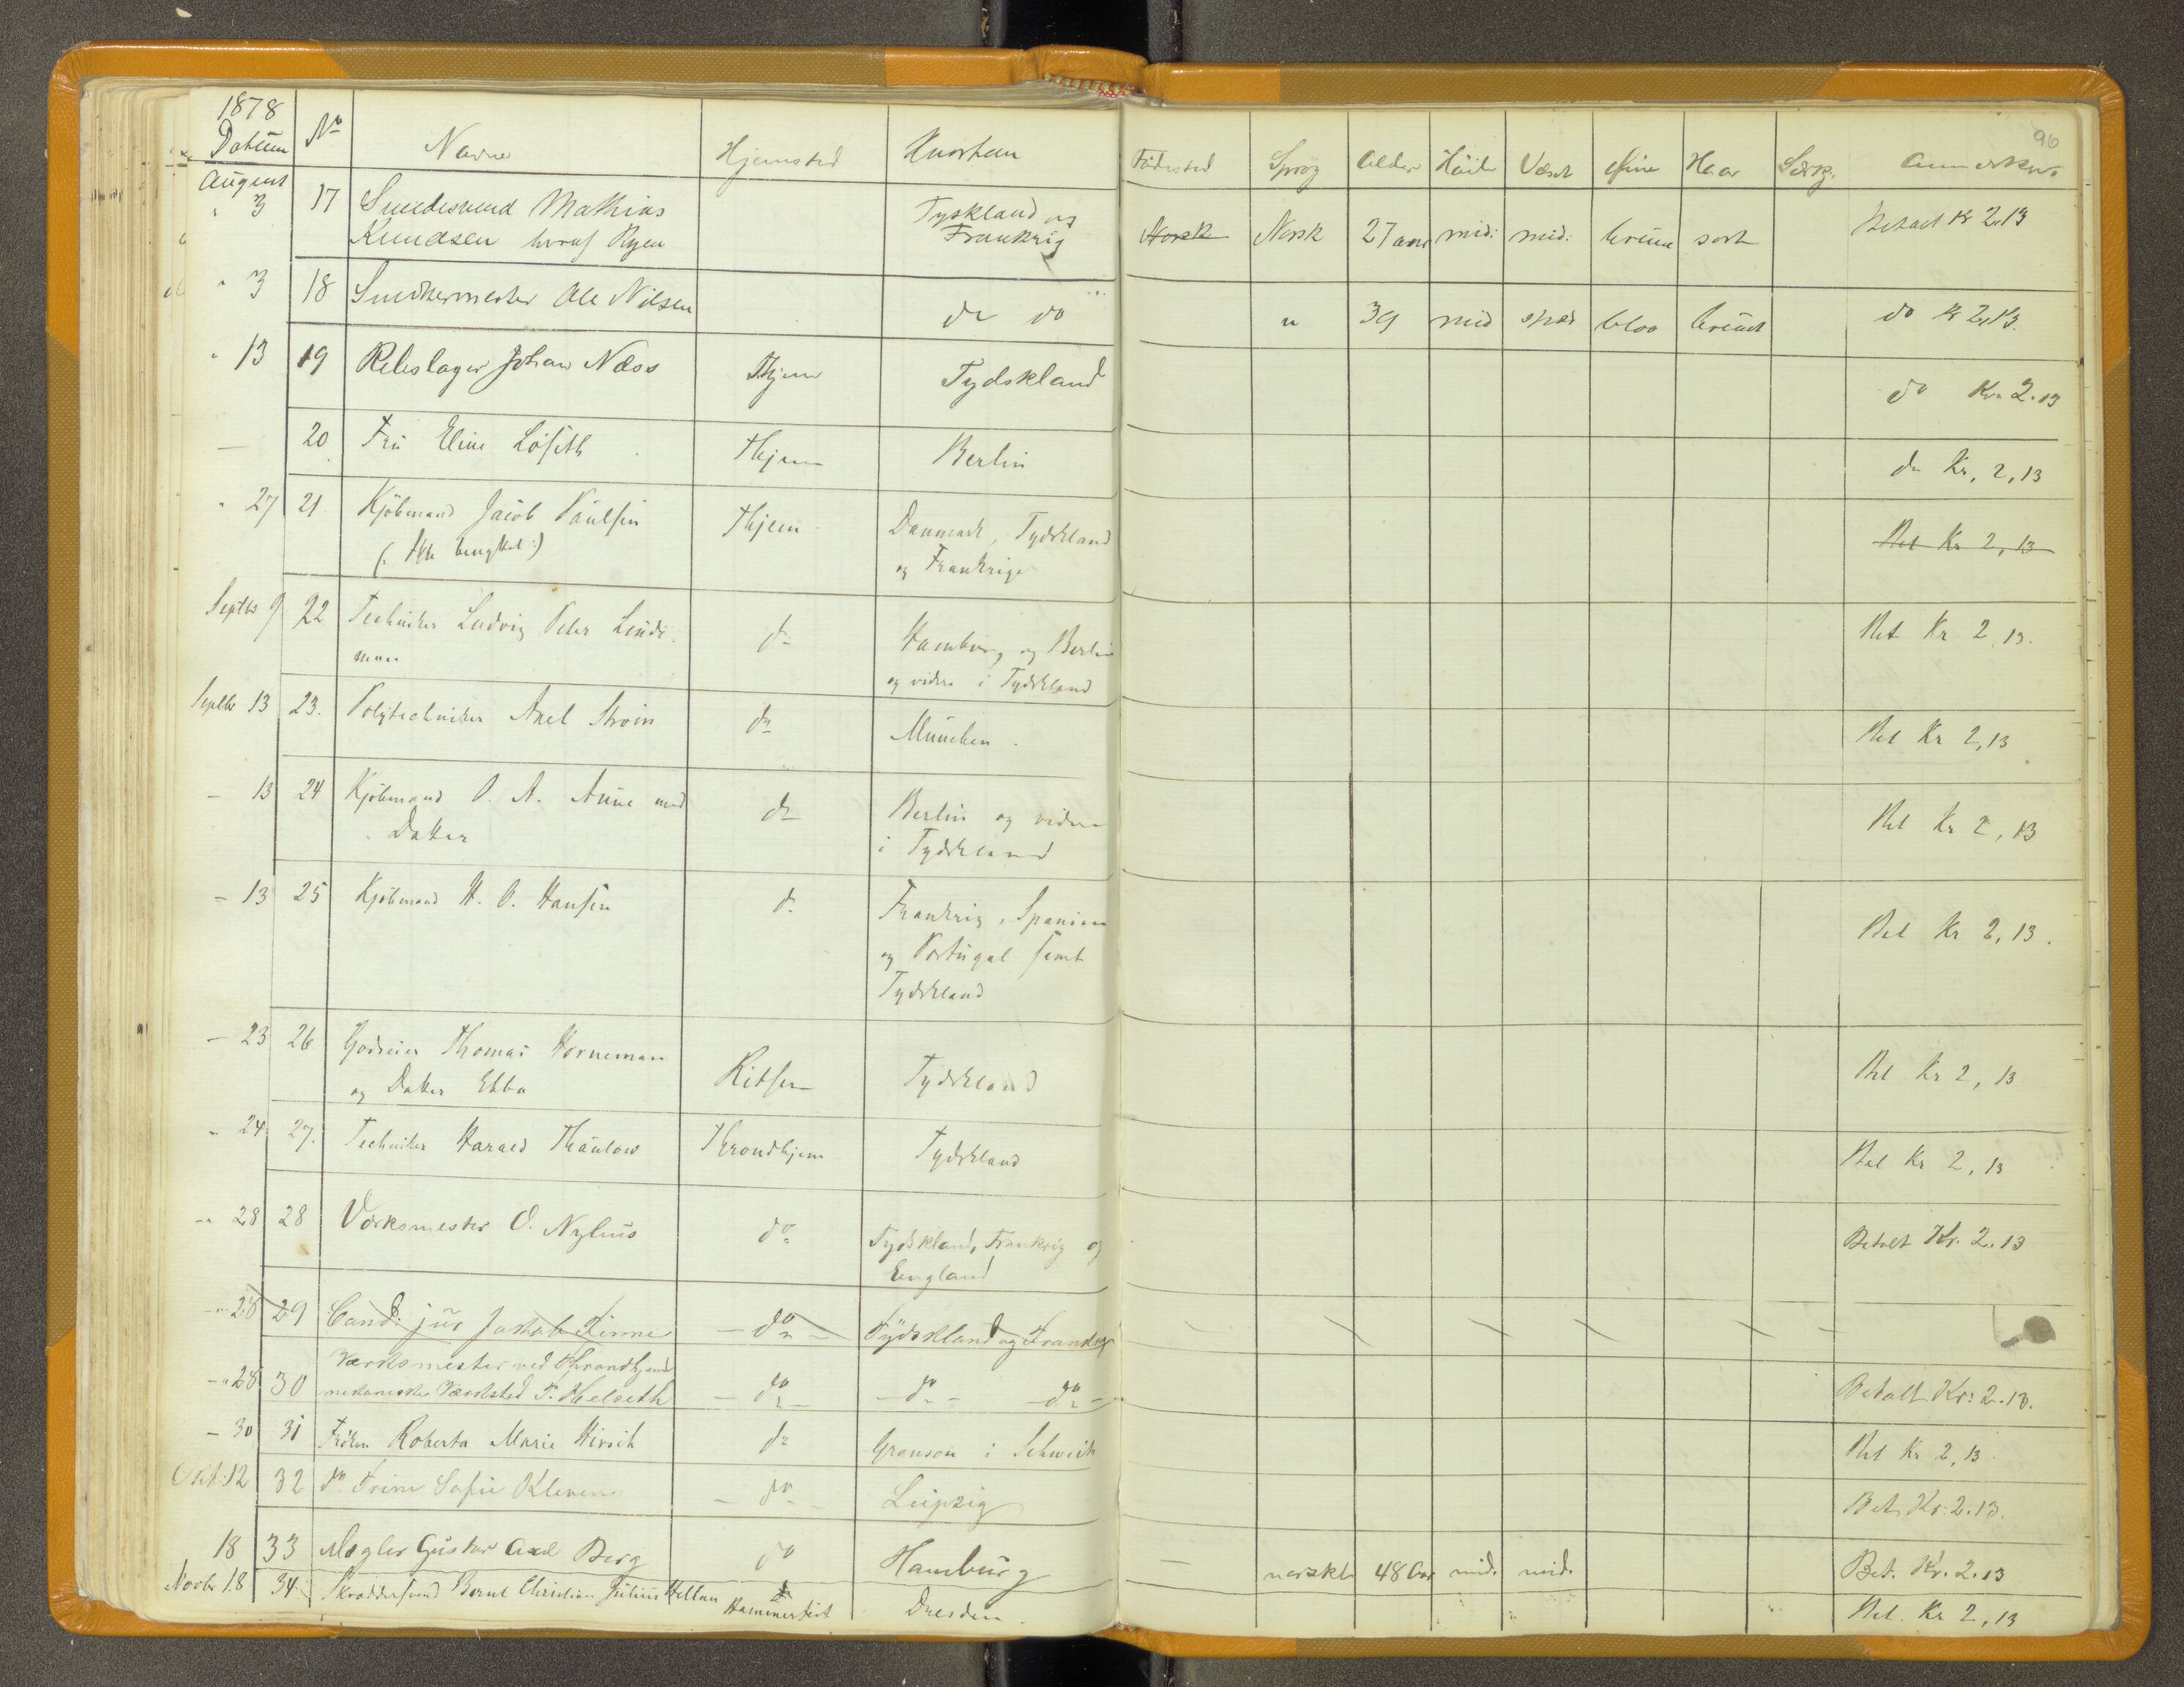 1878
Datum No Navn Hjemsted Hvorhen Födested Sprog Alder Höide Vext Öine Haar Særk. Anmerkn.
96
August
" 3 17 Smedesvend Mathias Tyskland og Norsk Norsk 27 aar mid: mid: brune sort Betalt Kr 2.13
Knudsen Ryen Frankrig
" 3 18 Snedkermester Ole Nilsen do do " 39 mid spæd bloa brunt do Kr 2,13.
" 13 19 Rebslager Johan Næss Thjem Tydskland do Kr. 2.13
— 20 Fru Eline Löfseth Thjem Berlin do Kr. 2,13
" 27 21 Kjöbmand Jacob Paulsen Thjem Danmark, Tydskland Bet Kr 2,13
(: Ikke benyttet :) og Frankrige
Septbr 9 22 Techniker Ludvig Peter Linde- do Hamburg og Berlin Bet Kr 2,13.
man og videre i Tydskland
Septbr 13 23. Polytechniker Axel Ström do München. Bet Kr 2,13
— 13 24 Kjöbmand P. A. Aune med do Berlin og videre Bet Kr 2,13
Datter i Tydskland
— 13 25 Kjöbmand H. P. Hansen do Frankrig, Spanien Bet Kr 2,13.
og Portugal samt
Tydskland
— 23 26 Godseier Thomas Horneman Ritsem Tydskland Bet Kr 2,13
og Datter Ebba
" 24 27. Techniker Harald Thaulow Throndhjem Tydskland Bet Kr 2,13
-" 28 28 Værksmester O. Nyhus do Tydskland, Frankrig og Betalt Kr. 2.13
England
-" 28 29 Cand: jur Jakob Finne — do — Tydskland og Frankrig
Værksmester ved Throndhjems
-" 28 30 mekaniske Værksted P. — do — — do — — do — Betalt Kr: 2.13.
— 30 31 Fröken Roberta Marie Hirsch do Granson i Schweitz Bet Kr 2,13.
Okt: 12 32 do Trine Sofie Kleven — do — Leipzig Bet. Kr. 2.13.
18 33 Mægler Gustav Axel Berg do Hamburg — norskt 48 Aar mid. mid. Bet. Kr. 2.13
Novbr 18 34. Skræddersvend Bernt Christian Julius Hellan Hammerfest Dresden. Bet. Kr 2,13